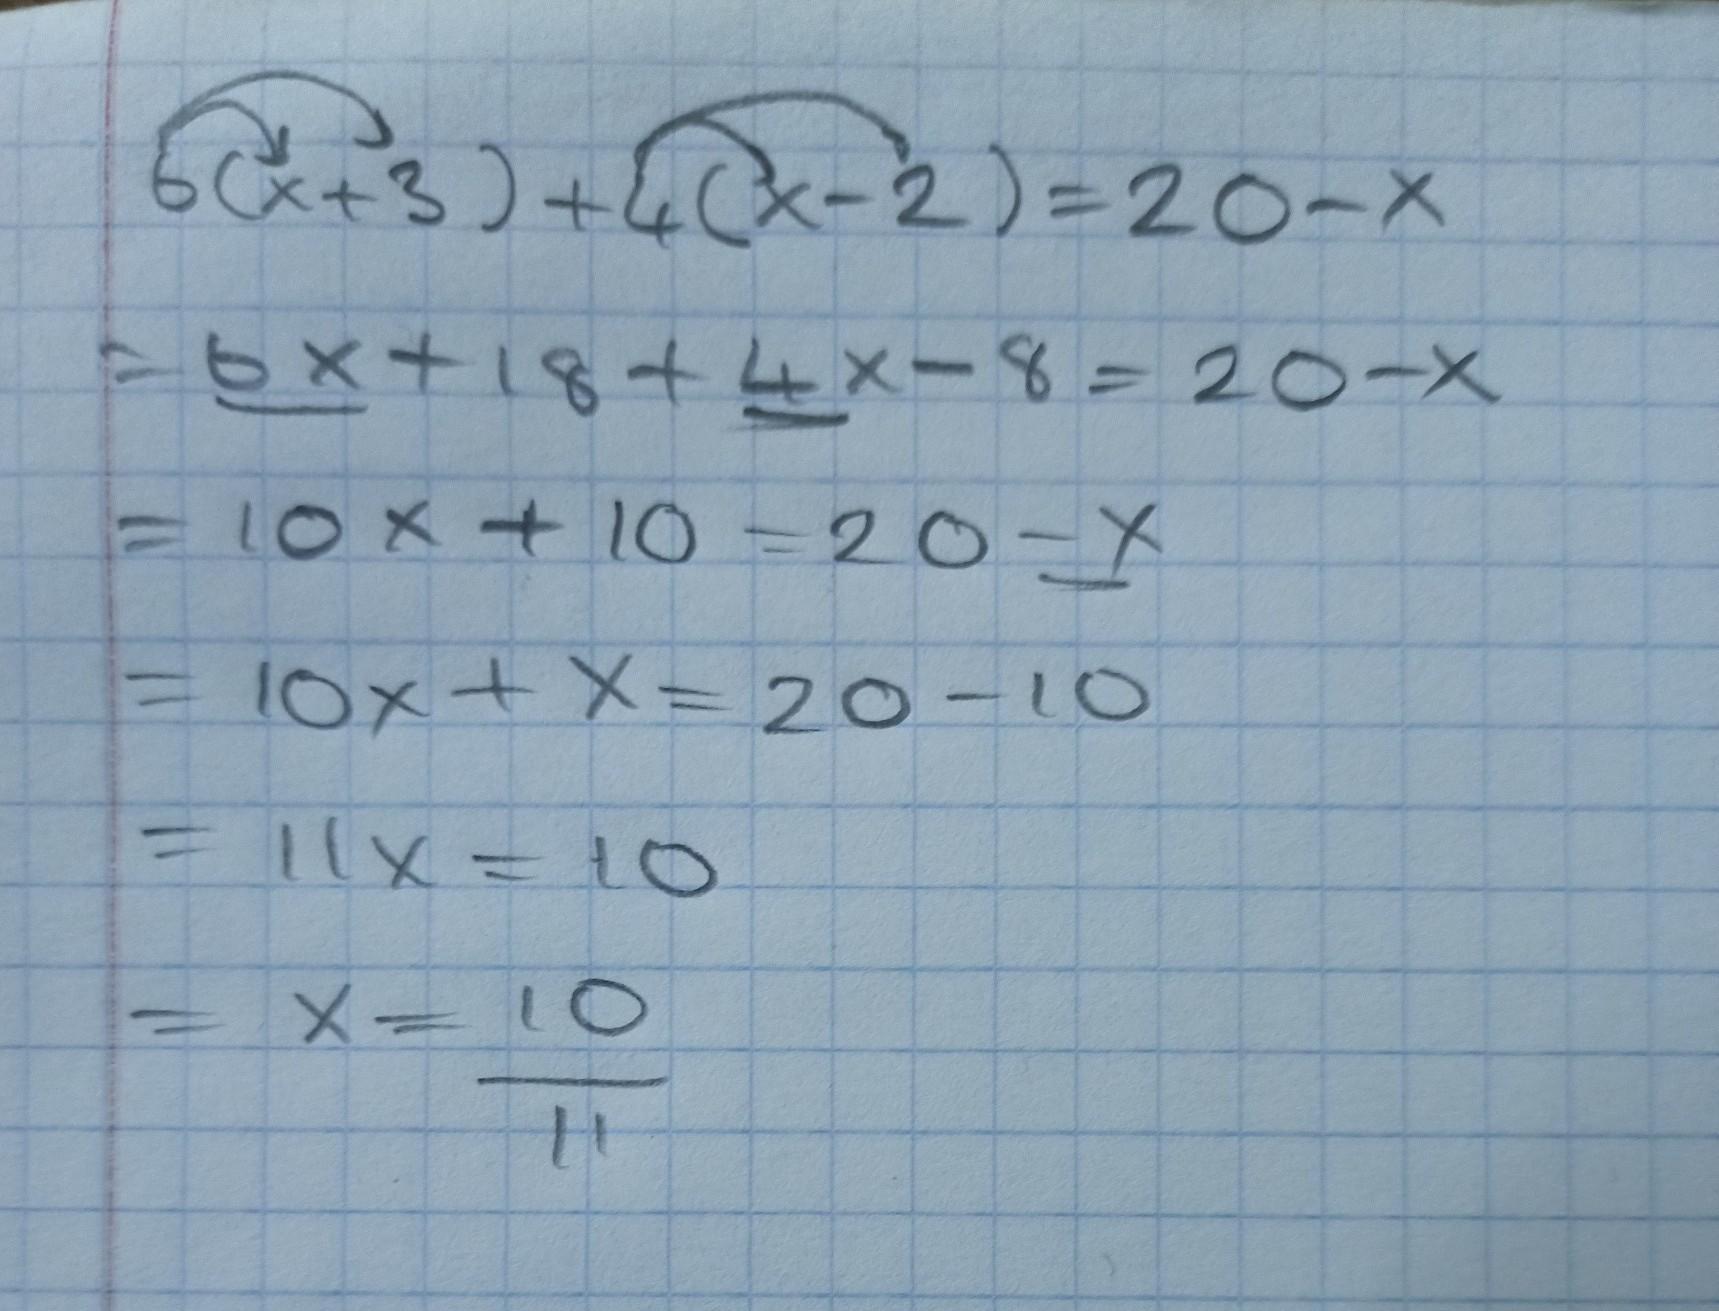 6(x+3)+4(x-2)=20-x
=6x+18+4x-8=20-x
=10x+10=20-x
=10x+x=20-10
=11x=10
=x=10
11